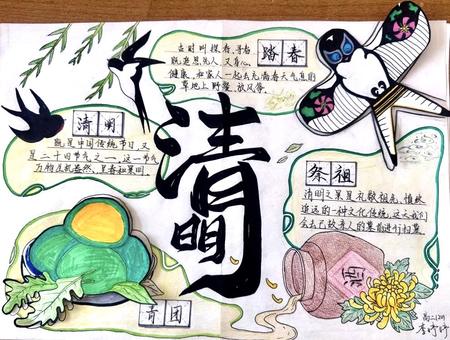 踏春
古时叫探春、寻春
既追思先人，又身心
健康，和家人一起去充满春天气息的
草地上野餐、放风筝。
清明
既是中国传统节日，又
是二十四节气之一，这一节气
万物生机盎然，呈春和景明。
清明
祭祖
清明文果是礼敬祖先、慎终
追远的一种文化传统，这天我们
会去已故亲人的墓前进行扫墓
酒
青团
高二1201